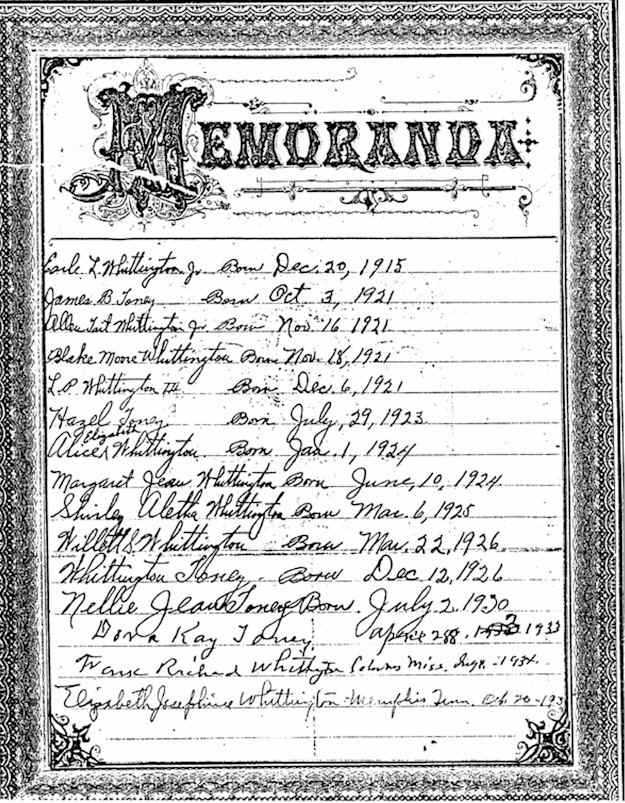 MEMORANDA
Earle L. Whittington Jr Born Dec. 20, 1915
James B. Toney Born Oct 3, 1921
Allen Tait Whittington Jr Born Nov. 16 1921
Blake Moore Whittington Born Nov. 18, 1921
L. P. Whittington III Born Dec. 6, 1921
Hazel Toney Born July, 29, 1923
Elizabeth
Alice Whittington Born Jan. 1, 1924
Margaret Jean Whittington Born June, 10, 1924
Shirley Aletha Whittington Born Mar. 6, 1925
Willett S. Whittington Born Mar. 22, 1926
Whittington Toney. Born Dec 12, 1926
Nellie Jean Toney Born. July 2, 1930
Kay Toney 1933
Richard Whittington Miss. 1934.
Elizabeth Josephine Whittington - Memphis Tenn. 20 - 193